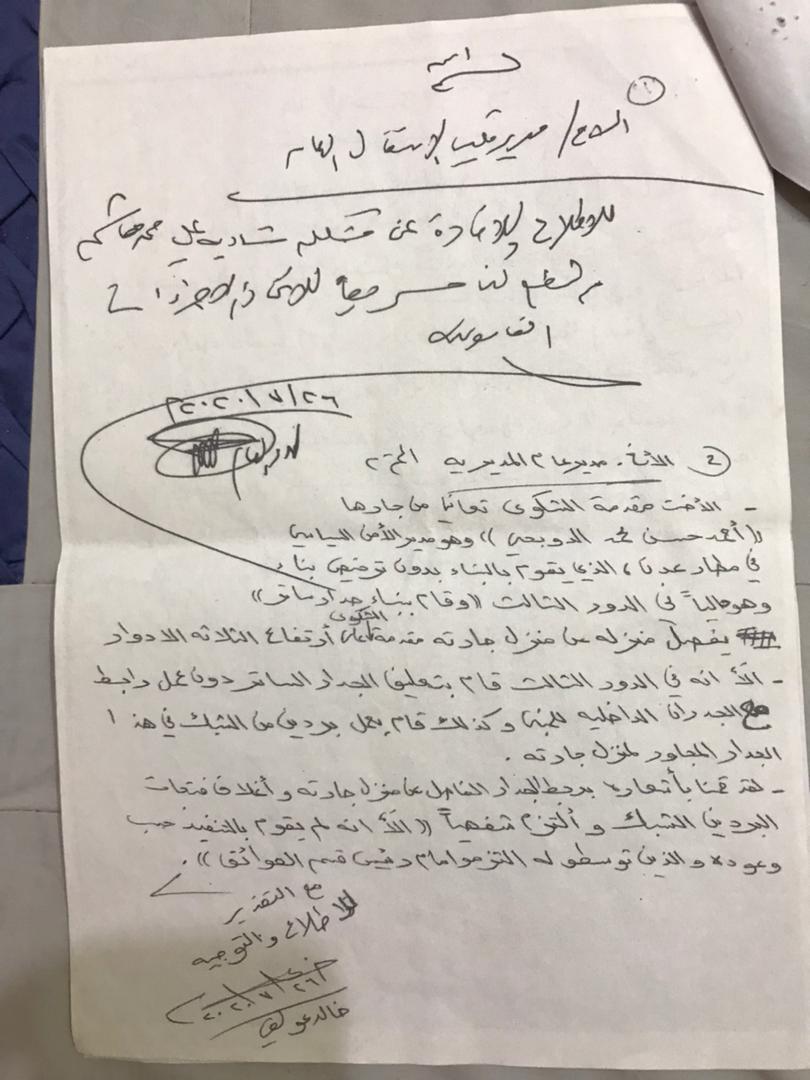 ①
الأخ / مدير مكتب الأشغال العامة
للاطلاع والإفادة عن مشكلة شاديه علي محمد هاشم
الاجراءات
القانونية
٢٠٢٠/٧/٢٦م
المدير العام
② الأخ. مدير عام المديريه المحترم
- الأخت مقدمة الشكوى تعاني من جارها
((أحمد حسن محمد الدوبحي)) وهو مدير الأمن السياسي
في مطار عدن، الذي يقوم بالبناء بدون ترخيص بناء
وهو حالياً في الدور الثالث ((وقام ببناء جدار ساتر))
يفصل منزله عن منزل جارته مقدمة الشكوى على أرتفاع الثلاثه الادوار
- الّا انه في الدور الثالث قام بتعليق الجدار الساتر دون عمل رابط
مع الجدران الداخليه للمبنى وكذلك قام بعمل بردين من الشبك في هذا
الجدار المجاور لمنزل جارته.
- لقد قمنا بأشعاره بربط الجدار الفاصل عن منزل جارته وأغلاق فتحات
البردين الشبك وألتزم شفهياً ((الّا انه لم يقوم بالتنفيذ حسب
وعوده والذين توسطوا له التزموا امام رئيس قسم العوائق)).
مع التقدير
للاطلاع والتوجيه
٢٠٢٠/٧/٢٦
خالد